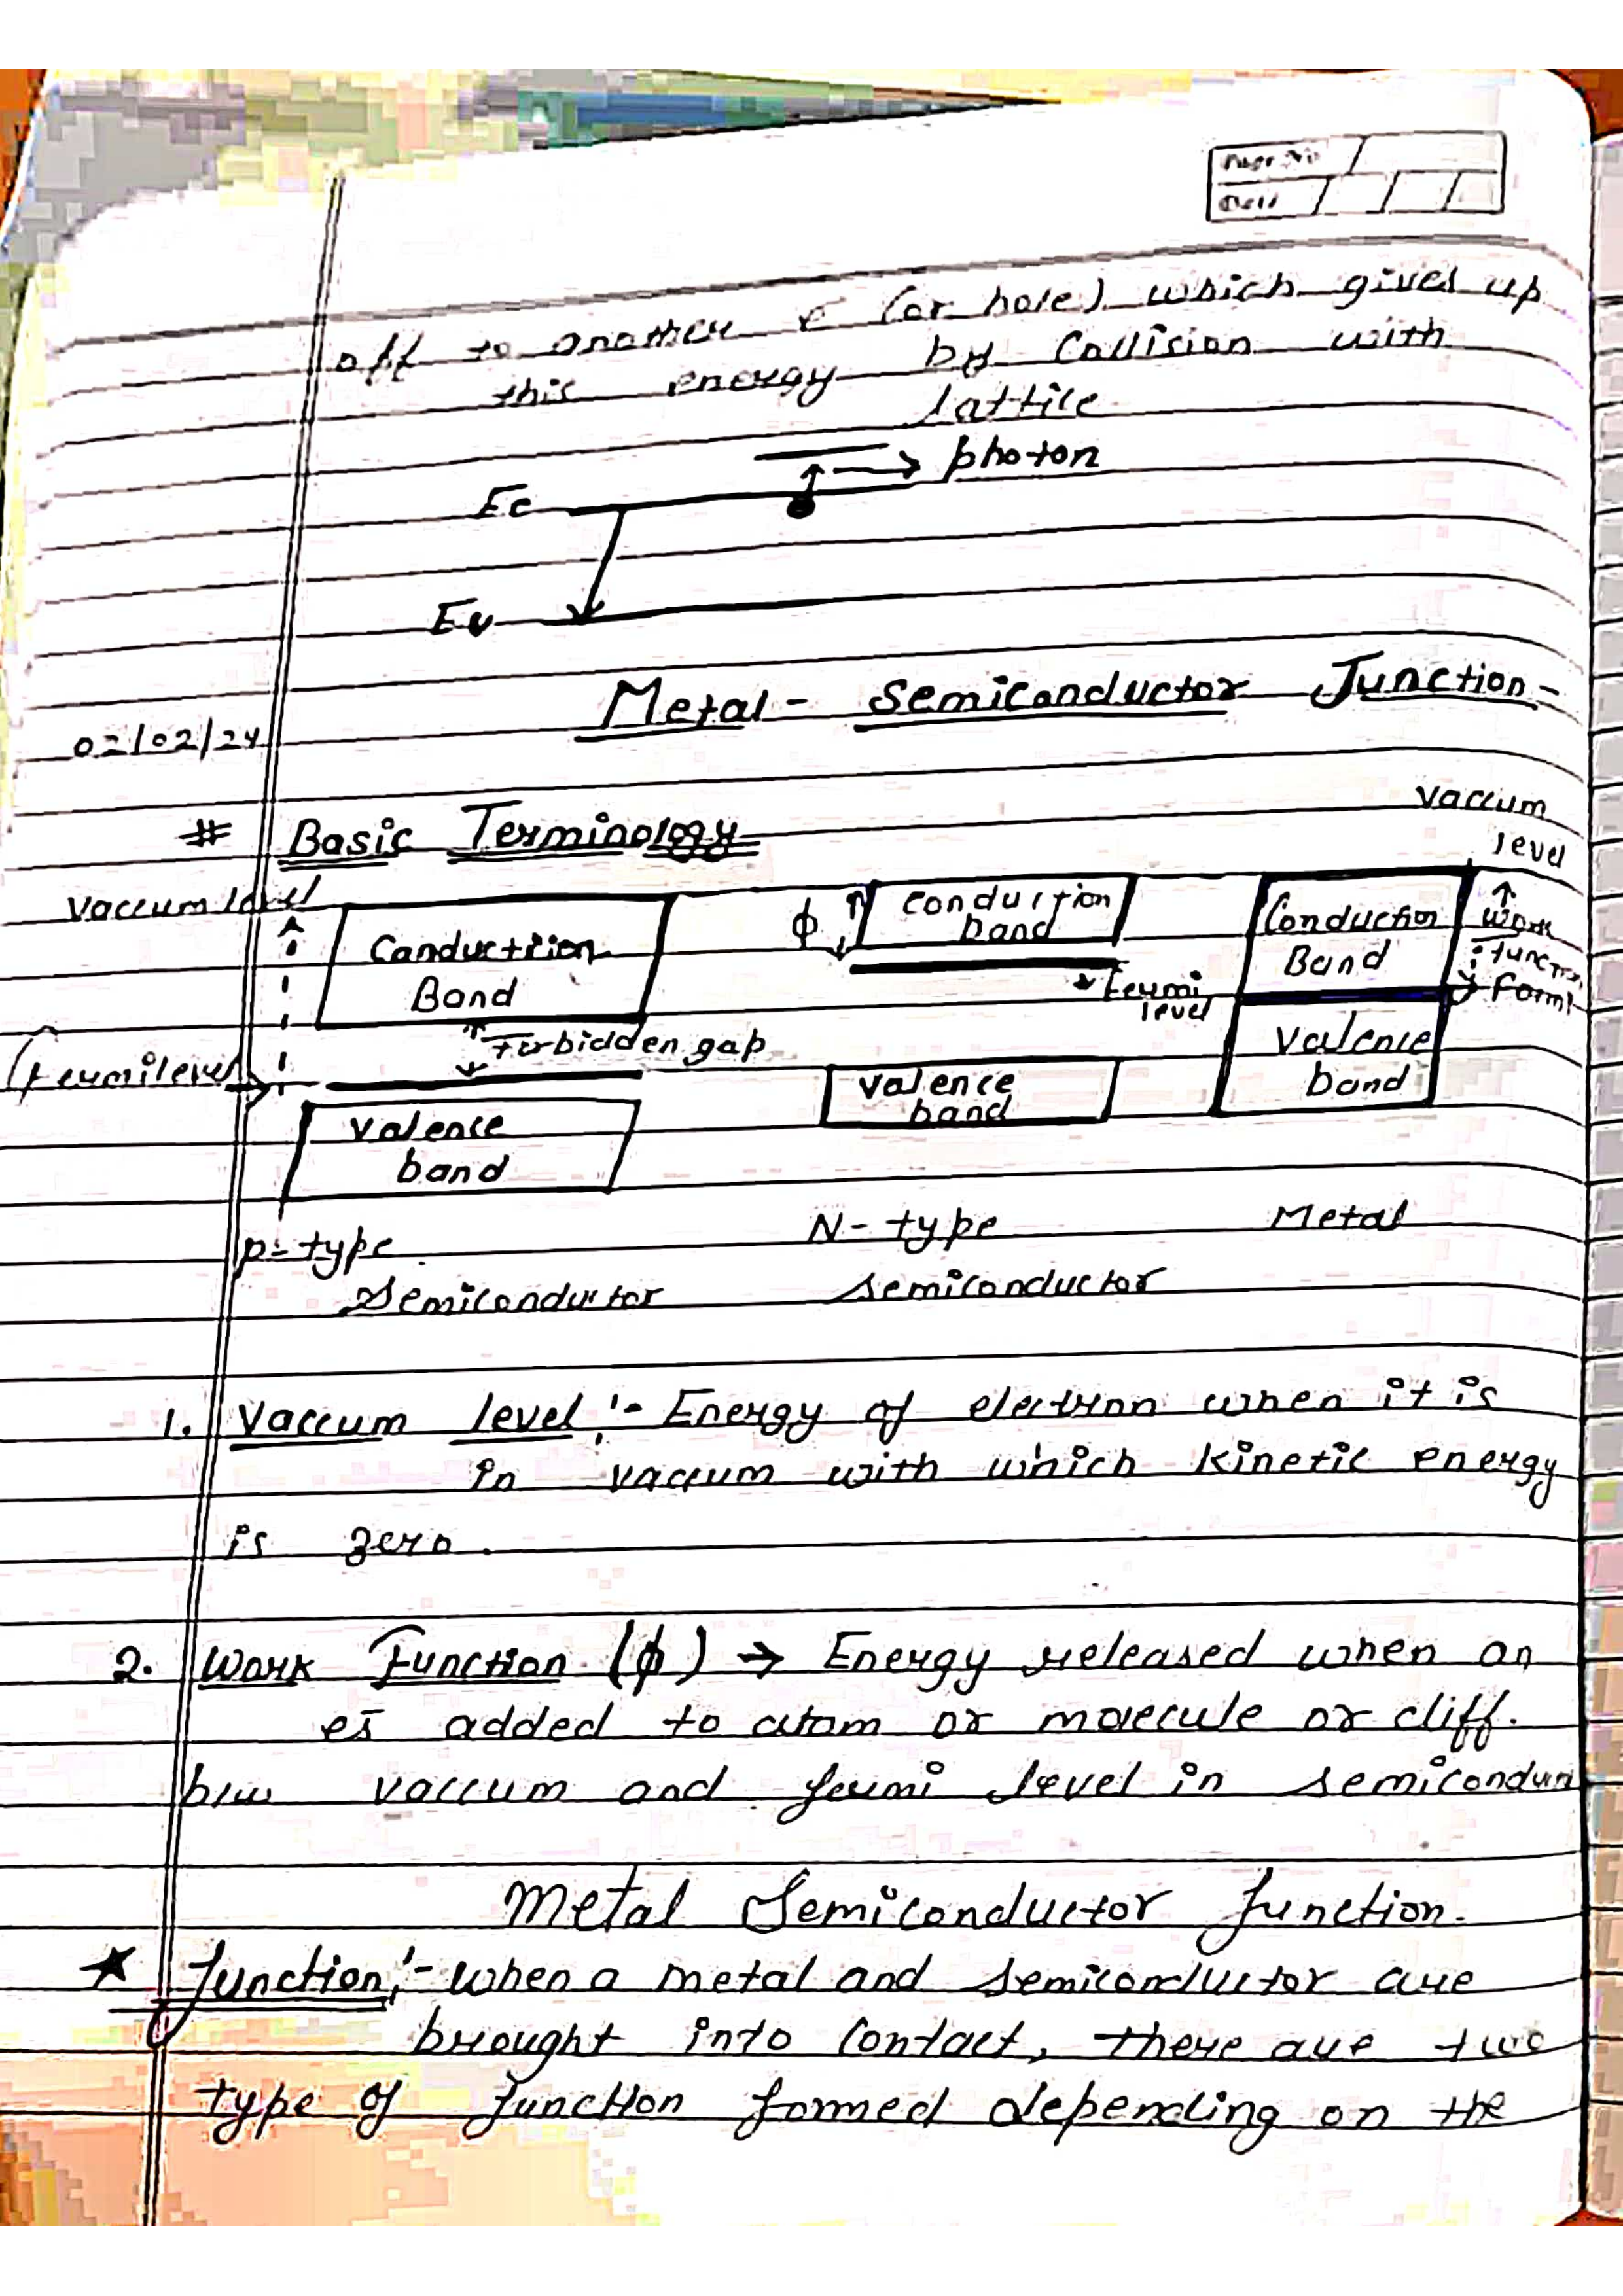 Page No
Date
off to another e (or hole) which gives up
this energy by Collision with
lattice
photon
Ec
Ev
Metal - Semiconductor Junction -
02/02/24
# Basic Terminology
Vaccum level
Vaccum level
Canductriion Band
Forbidden gap
Fermilevel
Valence band
ϕ
Conduction band
Fermi level
Valence band
Conduction Band
Work function
Valence band
P-type Semiconductor
N-type Semiconductor
Metal
1. Vaccum level :- Energy of electron when it is
in vaccum with which kinetic energy
is zero.
2. Work Function (ϕ) → Energy released when an
es added to atom or moecule or diff.
b/w vaccum and fermi level in semicondu
Metal Semiconductor Junction.
★ Junction :- when a metal and semiconductor are
brought into Contact, there are two
type of Junction formed depending on the